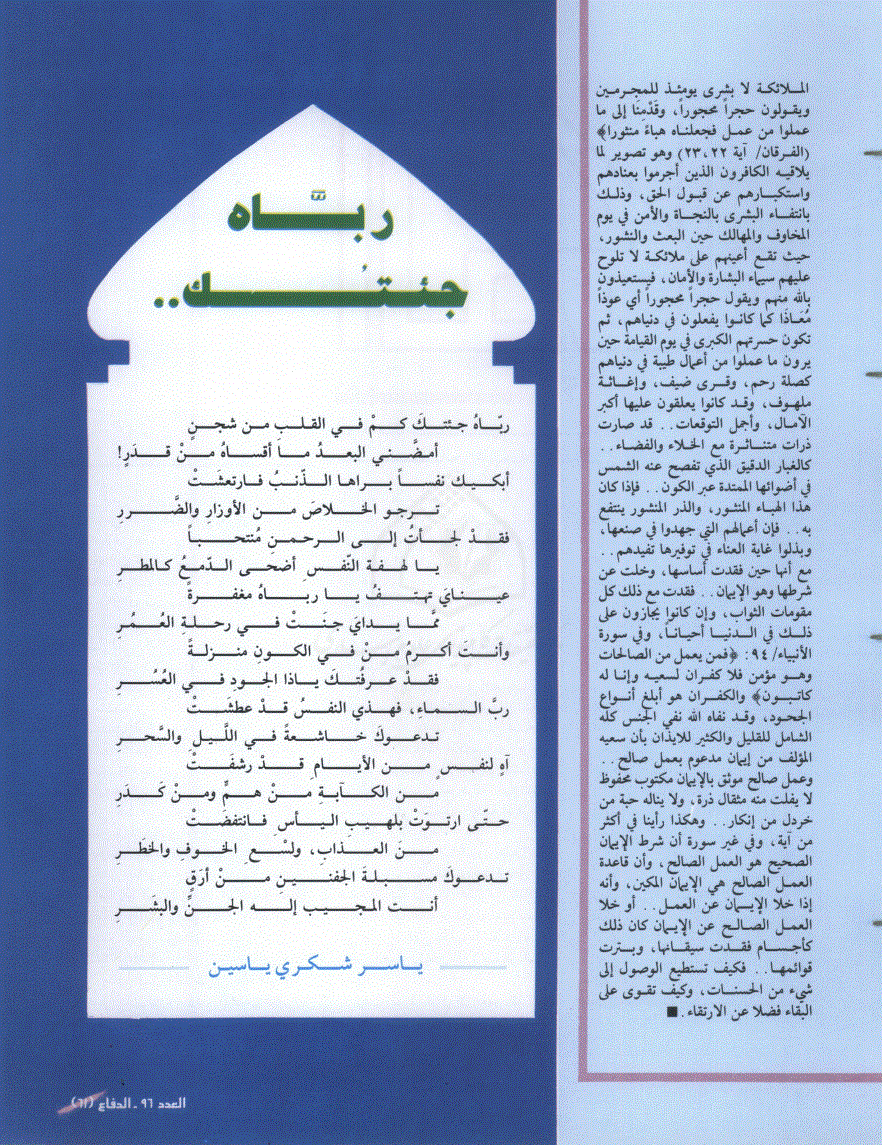 الملائكة لا بشرى يومئذ للمجرمين
ويقولون حجراً محجوراً، وقَدْمِنَا إلى ما
عملوا من عمل فجعلناه هباءً منثورا﴾
(الفرقان/ آية ٢٢، ٢٣) وهو تصوير لما
يلاقيه الكافرون الذين أجرموا بعنادهم
واستكبارهم عن قبول الحق، وذلك
بانتفاء البشرى بالنجاة والأمن في يوم
المخاوف والمهالك حين البعث والنشور،
حيث تقع أعينهم على ملائكة لا تلوح
عليهم سيماء البشارة والأمان، فيستعيذون
بالله منهم ويقول حجراً محجوراً أي عوذاً
مُعَاذًا كما كانوا يفعلون في دنياهم، ثم
تكون حسرتهم الكبرى في يوم القيامة حين
يرون ما عملوا من أعمال طيبة في دنياهم
كصلة رحم، وقرى ضيف، وإغاثة
ملهوف، وقد كانوا يعلقون عليها أكبر
الآمال، وأجمل التوقعات.. قد صارت
ذرات متناثرة مع الخلاء والفضاء..
كالغبار الدقيق الذي تفصح عنه الشمس
في أضوائها الممتدة عبر الكون.. فإذا كان
هذا الهباء المنثور، والذر المنثور ينتفع
به.. فإن أعمالهم التي جهدوا في صنعها،
وبذلوا غاية العناء في توفيرها تفيدهم..
مع أنها حين فقدت أساسها، وخلت عن
شرطها وهو الإيمان.. فقدت مع ذلك كل
مقومات الثواب، وإن كانوا يجازون على
ذلك في الدنيا أحياناً، وفي سورة
الأنبياء/ ٩٤: ﴿فمن يعمل من الصالحات
وهو مؤمن فلا كفران لسعيه وإنا له
كاتبون﴾ والكفران هو أبلغ أنواع
الجحود، وقد نفاه الله نفي الجنس كله
الشامل للقليل والكثير للايذان بأن سعيه
المؤلف من إيمان مدعوم بعمل صالح..
وعمل صالح موثق بالإيمان مكتوب محفوظ
لا يفلت منه مثقال ذرة، ولا يناله حبة من
خردل من إنكار.. وهكذا رأينا في أكثر
من آية، وفي غير سورة أن شرط الإيمان
الصحيح هو العمل الصالح، وأن قاعدة
العمل الصالح هي الإيمان المكين، وأنه
إذا خلا الإيمان عن العمل.. أو خلا
العمل الصالح عن الإيمان كان ذلك
كأجسام فقدت سيقانها، وبترت
قوائمها.. فكيف تستطيع الوصول إلى
شيء من الحسنات، وكيف تقوى على
البقاء فضلا عن الارتقاء. ■
ربَّاه
جئتُك..
ربّاهُ جئتكَ كمْ في القلبِ من شجنٍ
أمضَّني البعدُ ما أقساهُ منْ قدَرٍ!
أبكيك نفساً براها الذّنبُ فارتعشَتْ
ترجو الخلاصَ من الأوزارِ والضَّررِ
فقدْ لجأتُ إلى الرحمنِ مُنتحباً
يا لهفة النّفسِ أضحى الدّمعُ كالمطرِ
عينايَ تهتفُ يا رباهُ مغفرةً
ممَّا يدايَ جنَتْ في رحلةِ العُمُرِ
وأنتَ أكرمُ منْ في الكونِ منزلةً
فقدْ عرفتُك ياذا الجودِ في العُسُرِ
ربَّ السماءِ، فهذي النفسُ قدْ عطشَتْ
تدعوكَ خاشعةً في اللَّيلِ والسَّحرِ
آهِ لنفسٍ من الأيامِ قدْ رشفَتْ
من الكآبةِ منْ همٍّ ومنْ كَدَرِ
حتّى ارتوَتْ بلهيبِ اليأسِ فانتفضَتْ
منَ العذابِ، ولسْعِ الخوفِ والخطَرِ
تدعوكَ مسبلةَ الجفنينِ منْ أرَقٍ
أنت المجيب إله الجنِّ والبشَرِ
ياسر شكري ياسين
العدد ٩٦ ـ الدفاع (٦١)